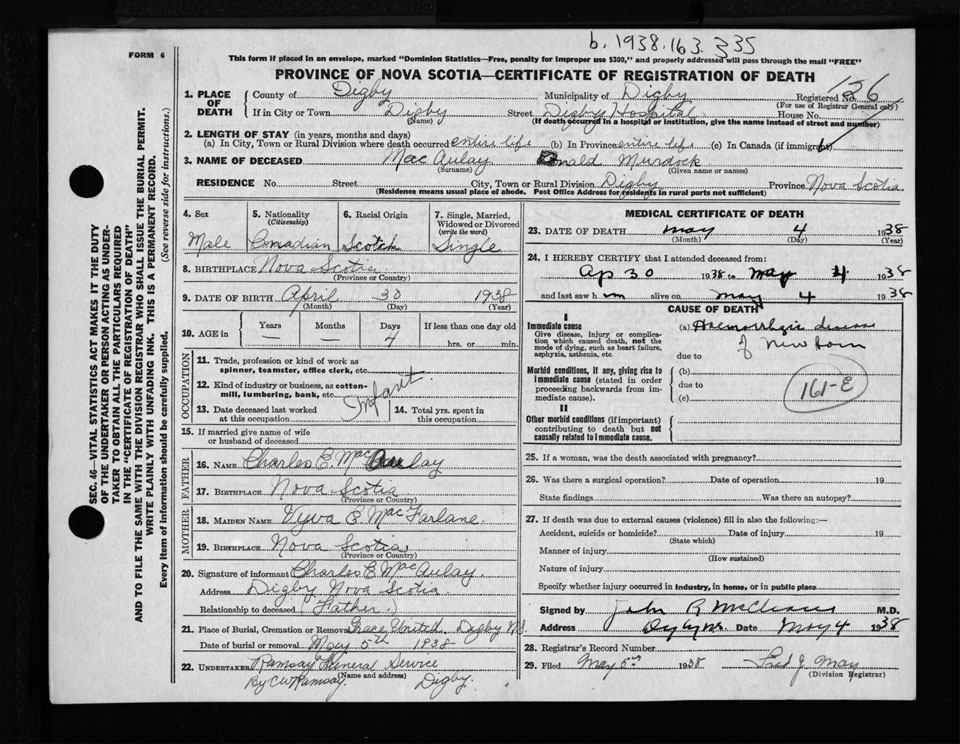 b. 1938.163.335
FORM 6
This form if placed in an envelope, marked "Dominion Statistics—Free, penalty for improper use $300," and properly addressed will pass through the mail "FREE"
PROVINCE OF NOVA SCOTIA—CERTIFICATE OF REGISTRATION OF DEATH
SEC. 46—VITAL STATISTICS ACT MAKES IT THE DUTY
OF THE UNDERTAKER OR PERSON ACTING AS UNDER-
TAKER TO OBTAIN ALL THE PARTICULARS REQUIRED
IN THE "CERTIFICATE OF REGISTRATION OF DEATH"
AND TO FILE THE SAME WITH THE DIVISION REGISTRAR WHO SHALL ISSUE THE BURIAL PERMIT.
WRITE PLAINLY WITH UNFADING INK. THIS IS A PERMANENT RECORD.
Every item of information should be carefully supplied. (See reverse side for instructions.)
1. PLACE OF DEATH County of Digby Municipality of Digby Registered No. 156
(For use of Registrar General only)
If in City or Town Digby Street Digby Hospital House No.
(Name) (If death occurred in a hospital or institution, give the name instead of street and number)
2. LENGTH OF STAY (in years, months and days)
(a) In City, Town or Rural Division where death occurred entire life (b) In Province entire life (c) In Canada (if immigrant)
3. NAME OF DECEASED MacAulay Donald Murdock
(Surname) (Given name or names)
RESIDENCE No. Street City, Town or Rural Division Digby Province Nova Scotia
(Residence means usual place of abode. Post Office Address for residents in rural parts not sufficient)
4. Sex 5. Nationality (Citizenship) 6. Racial Origin 7. Single, Married, Widowed or Divorced (write the word)
Male Canadian Scotch Single
8. BIRTHPLACE Nova Scotia
(Province or Country)
9. DATE OF BIRTH April 30 1938
(Month) (Day) (Year)
10. AGE in Years Months Days If less than one day old
— — 4 hrs. or min.
OCCUPATION
11. Trade, profession or kind of work as
spinner, teamster, office clerk, etc.
12. Kind of industry or business, as cotton-
mill, lumbering, bank, etc. Infant
13. Date deceased last worked at this occupation 14. Total yrs. spent in this occupation
15. If married give name of wife
or husband of deceased
FATHER
16. NAME Charles E. MacAulay
17. BIRTHPLACE Nova Scotia
(Province or Country)
MOTHER
18. MAIDEN NAME E. MacFarlane.
19. BIRTHPLACE Nova Scotia
(Province or Country)
20. Signature of informant Charles E MacAulay.
Address Digby Nova Scotia
Relationship to deceased (Father.)
21. Place of Burial, Cremation or Removal Grace United. Digby N.S.
Date of burial or removal May 5th 1938
22. UNDERTAKER Ramsay Funeral Service
(Name and address)
By C W Ramsay. Digby.
MEDICAL CERTIFICATE OF DEATH
23. DATE OF DEATH May 4 1938
(Month) (Day) (Year)
24. I HEREBY CERTIFY that I attended deceased from:
Ap 30 1938 to May 4 1938
and last saw him alive on May 4 1938
CAUSE OF DEATH
I
Immediate cause (a) Haemorrhagic disease
of New born
Give disease, injury or complica-
tion which caused death, not the
mode of dying, such as heart failure,
asphyxia, asthenia, etc. due to
Morbid conditions, if any, giving rise to
immediate cause (stated in order
proceeding backwards from im-
mediate cause). (b)
due to
(c)
161-E
II
Other morbid conditions (if important)
contributing to death but not
causally related to immediate cause.
25. If a woman, was the death associated with pregnancy?
26. Was there a surgical operation? Date of operation 19
State findings Was there an autopsy?
27. If death was due to external causes (violence) fill in also the following:—
Accident, suicide or homicide? Date of injury 19
(State which)
Manner of injury
(How sustained)
Nature of injury
Specify whether injury occurred in industry, in home, or in public place
Signed by John R M.D.
Address Date May 4 1938
28. Registrar's Record Number
29. Filed May 5th 1938 Fred J. May
(Division Registrar)